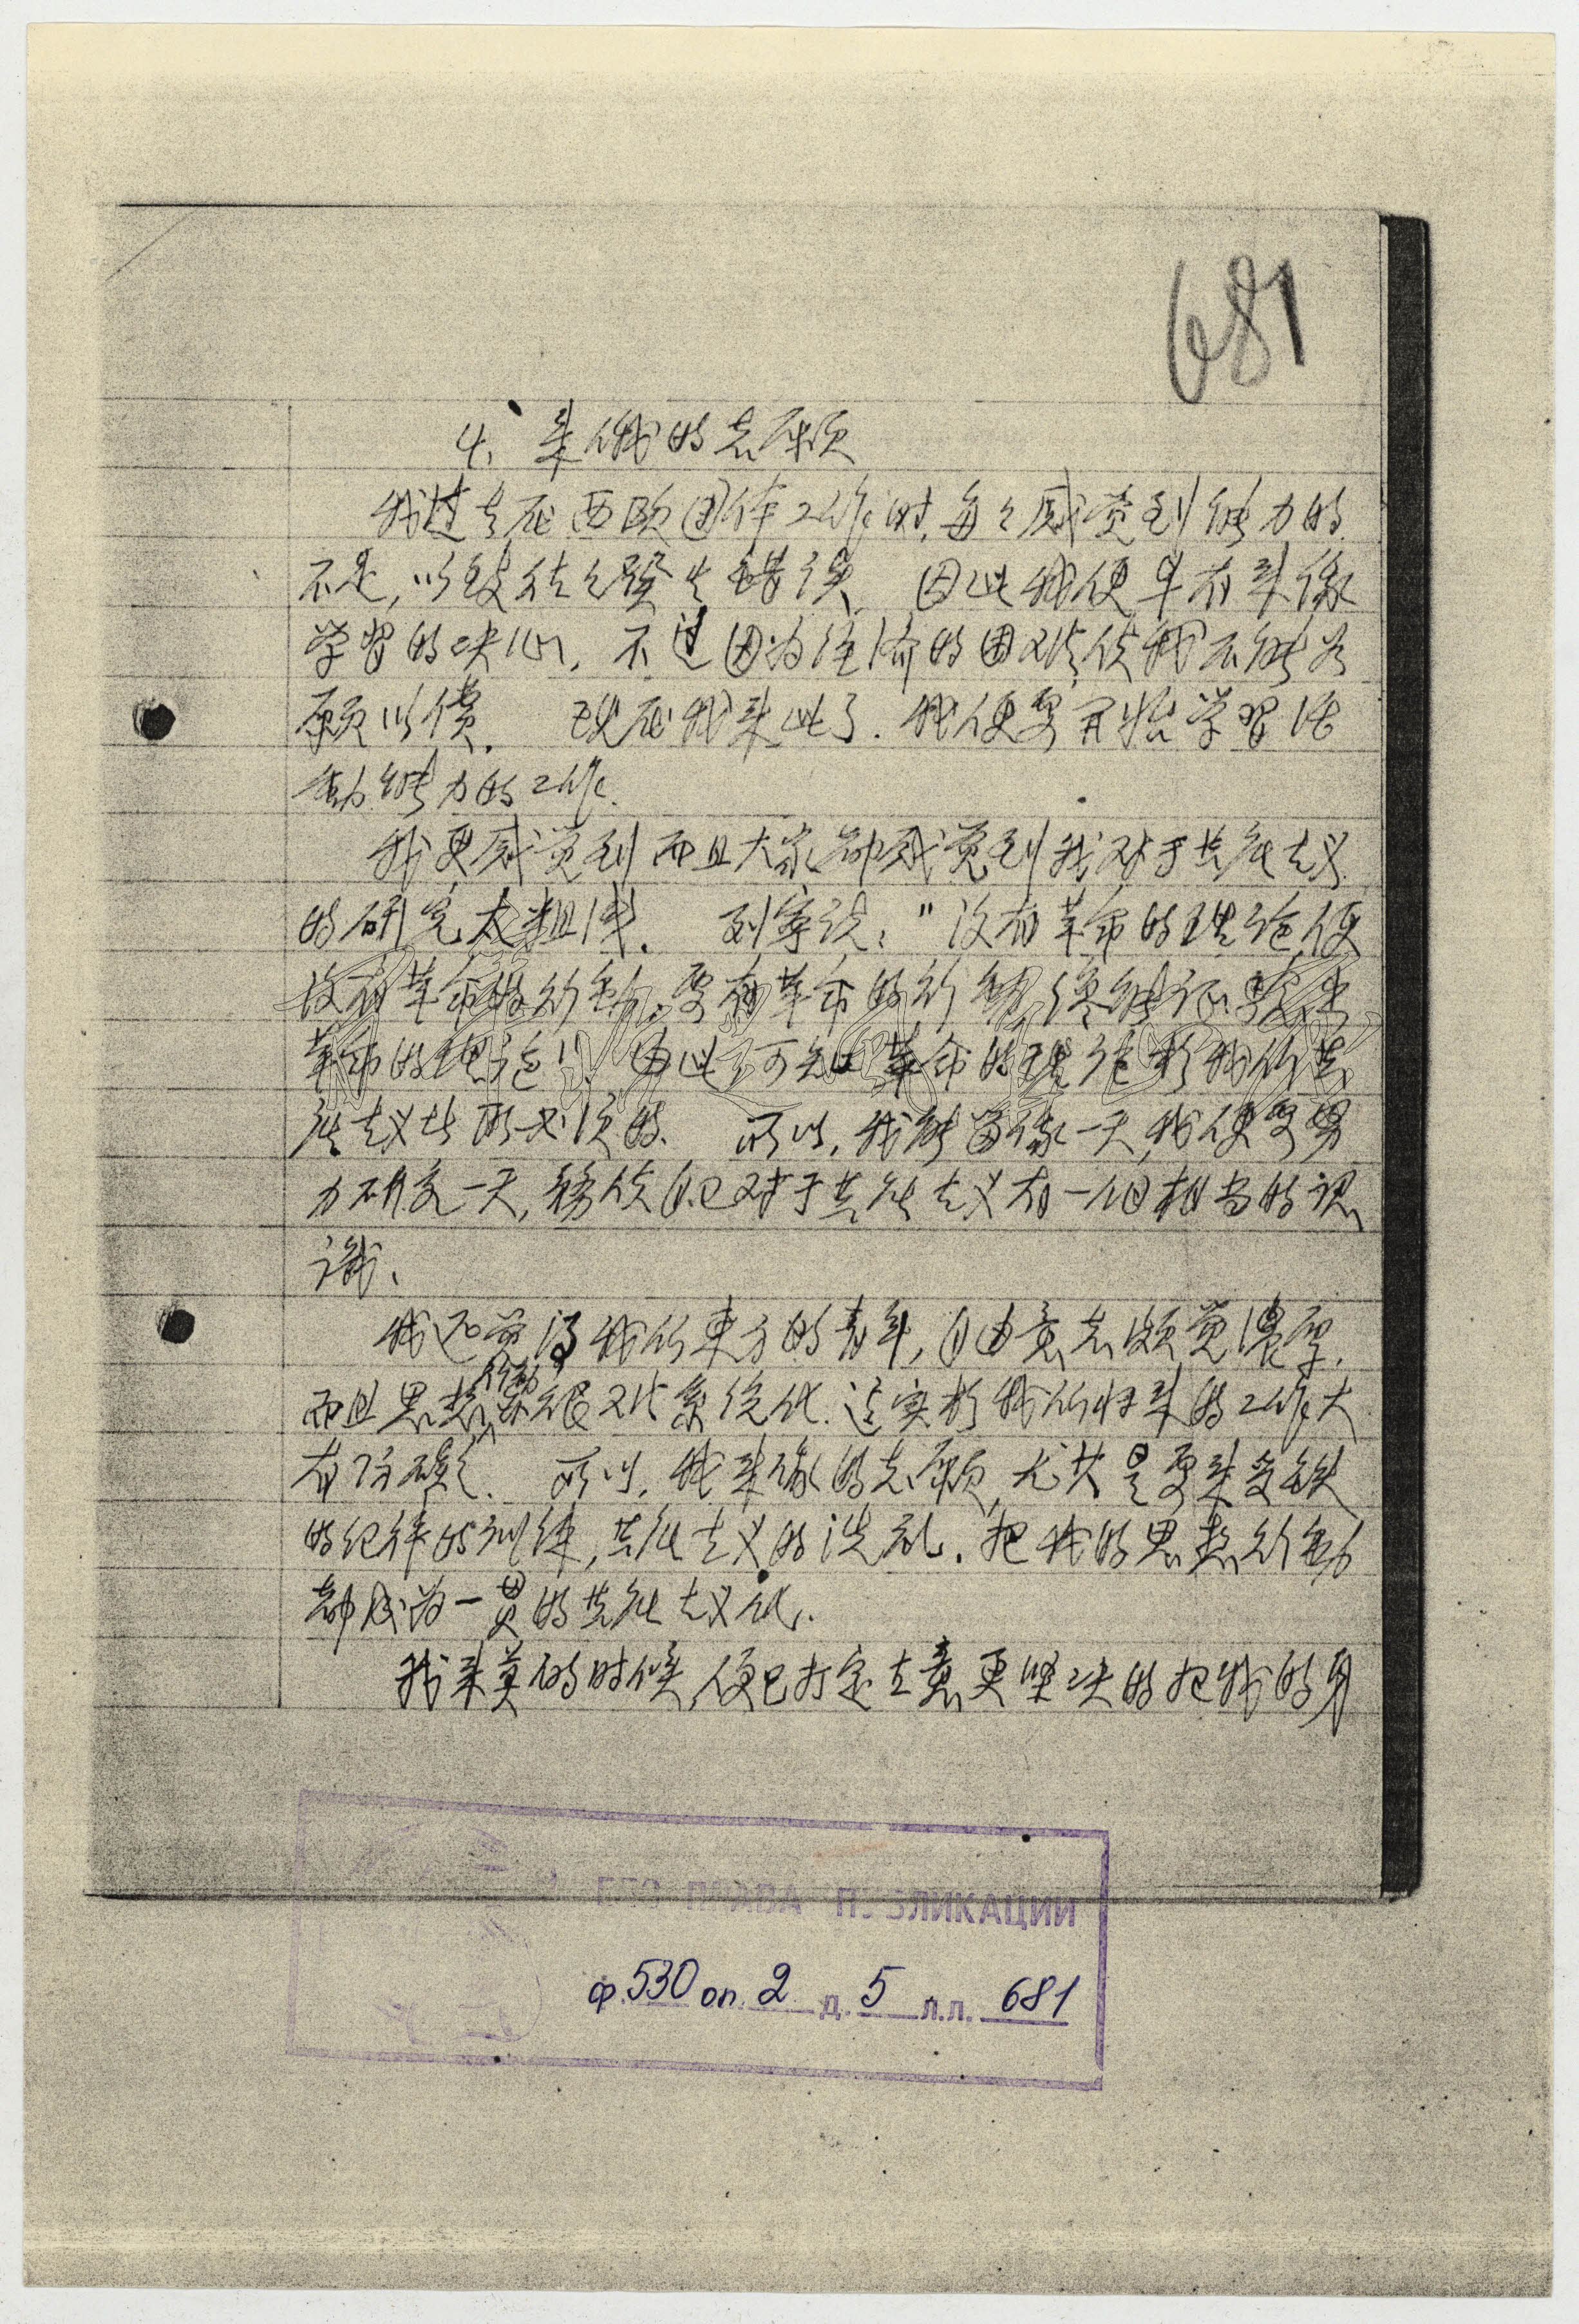 681
4、来俄的志愿
我过去在西欧团体工作时,每々感觉到能力的
不足,以致往々發生错误. 因此我便早有来俄
学習的决心,不过因为经济的困难使我不能如
願以償. 现在我来此了.我便要开始学習活
動能力的工作.
我更感觉到而且大家都感觉到我对于共产主义
的研究太粗浅. 列寧说:"没有革命的理论,便
没有革命的行動,要有革命的行動,终能证驗出
革命的理论". 由此可知革命的理论於我们共
产主义者所必须的. 所以,我能留俄一天,我便要努
力研究一天,务使自己对于共产主义有一個相当的认
識.
我还觉得我们東方的青年,自由意志颇觉濃厚,
而且思想行動亦很难系统化.这实於我们归来的工作大
有防礙. 所以,我来俄的志願,尤其是要来受铁
的纪律的训练,共产主义的洗礼,把我的思想行動
都成为一贯的共产主义化.
我来莫的时候,便已打定主意更坚决的把我的身
БЕЗ ПРАВА ПУБЛИКАЦИИ
ф.530 оп. 2 д. 5 л.л. 681